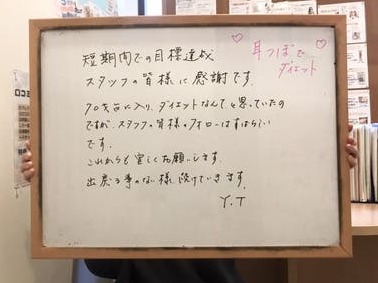 短期間での目標達成
スタッフの皆様に感謝です。
70代に入り、ダイエットなんて、と思っていたの
ですが、スタッフの皆様のフォローはすばらしい
です。
これからも宜しくお願いします。
出戻る事のない様、続けていきます。
Y.T
♡ 耳つぼで
ダイエット ♡